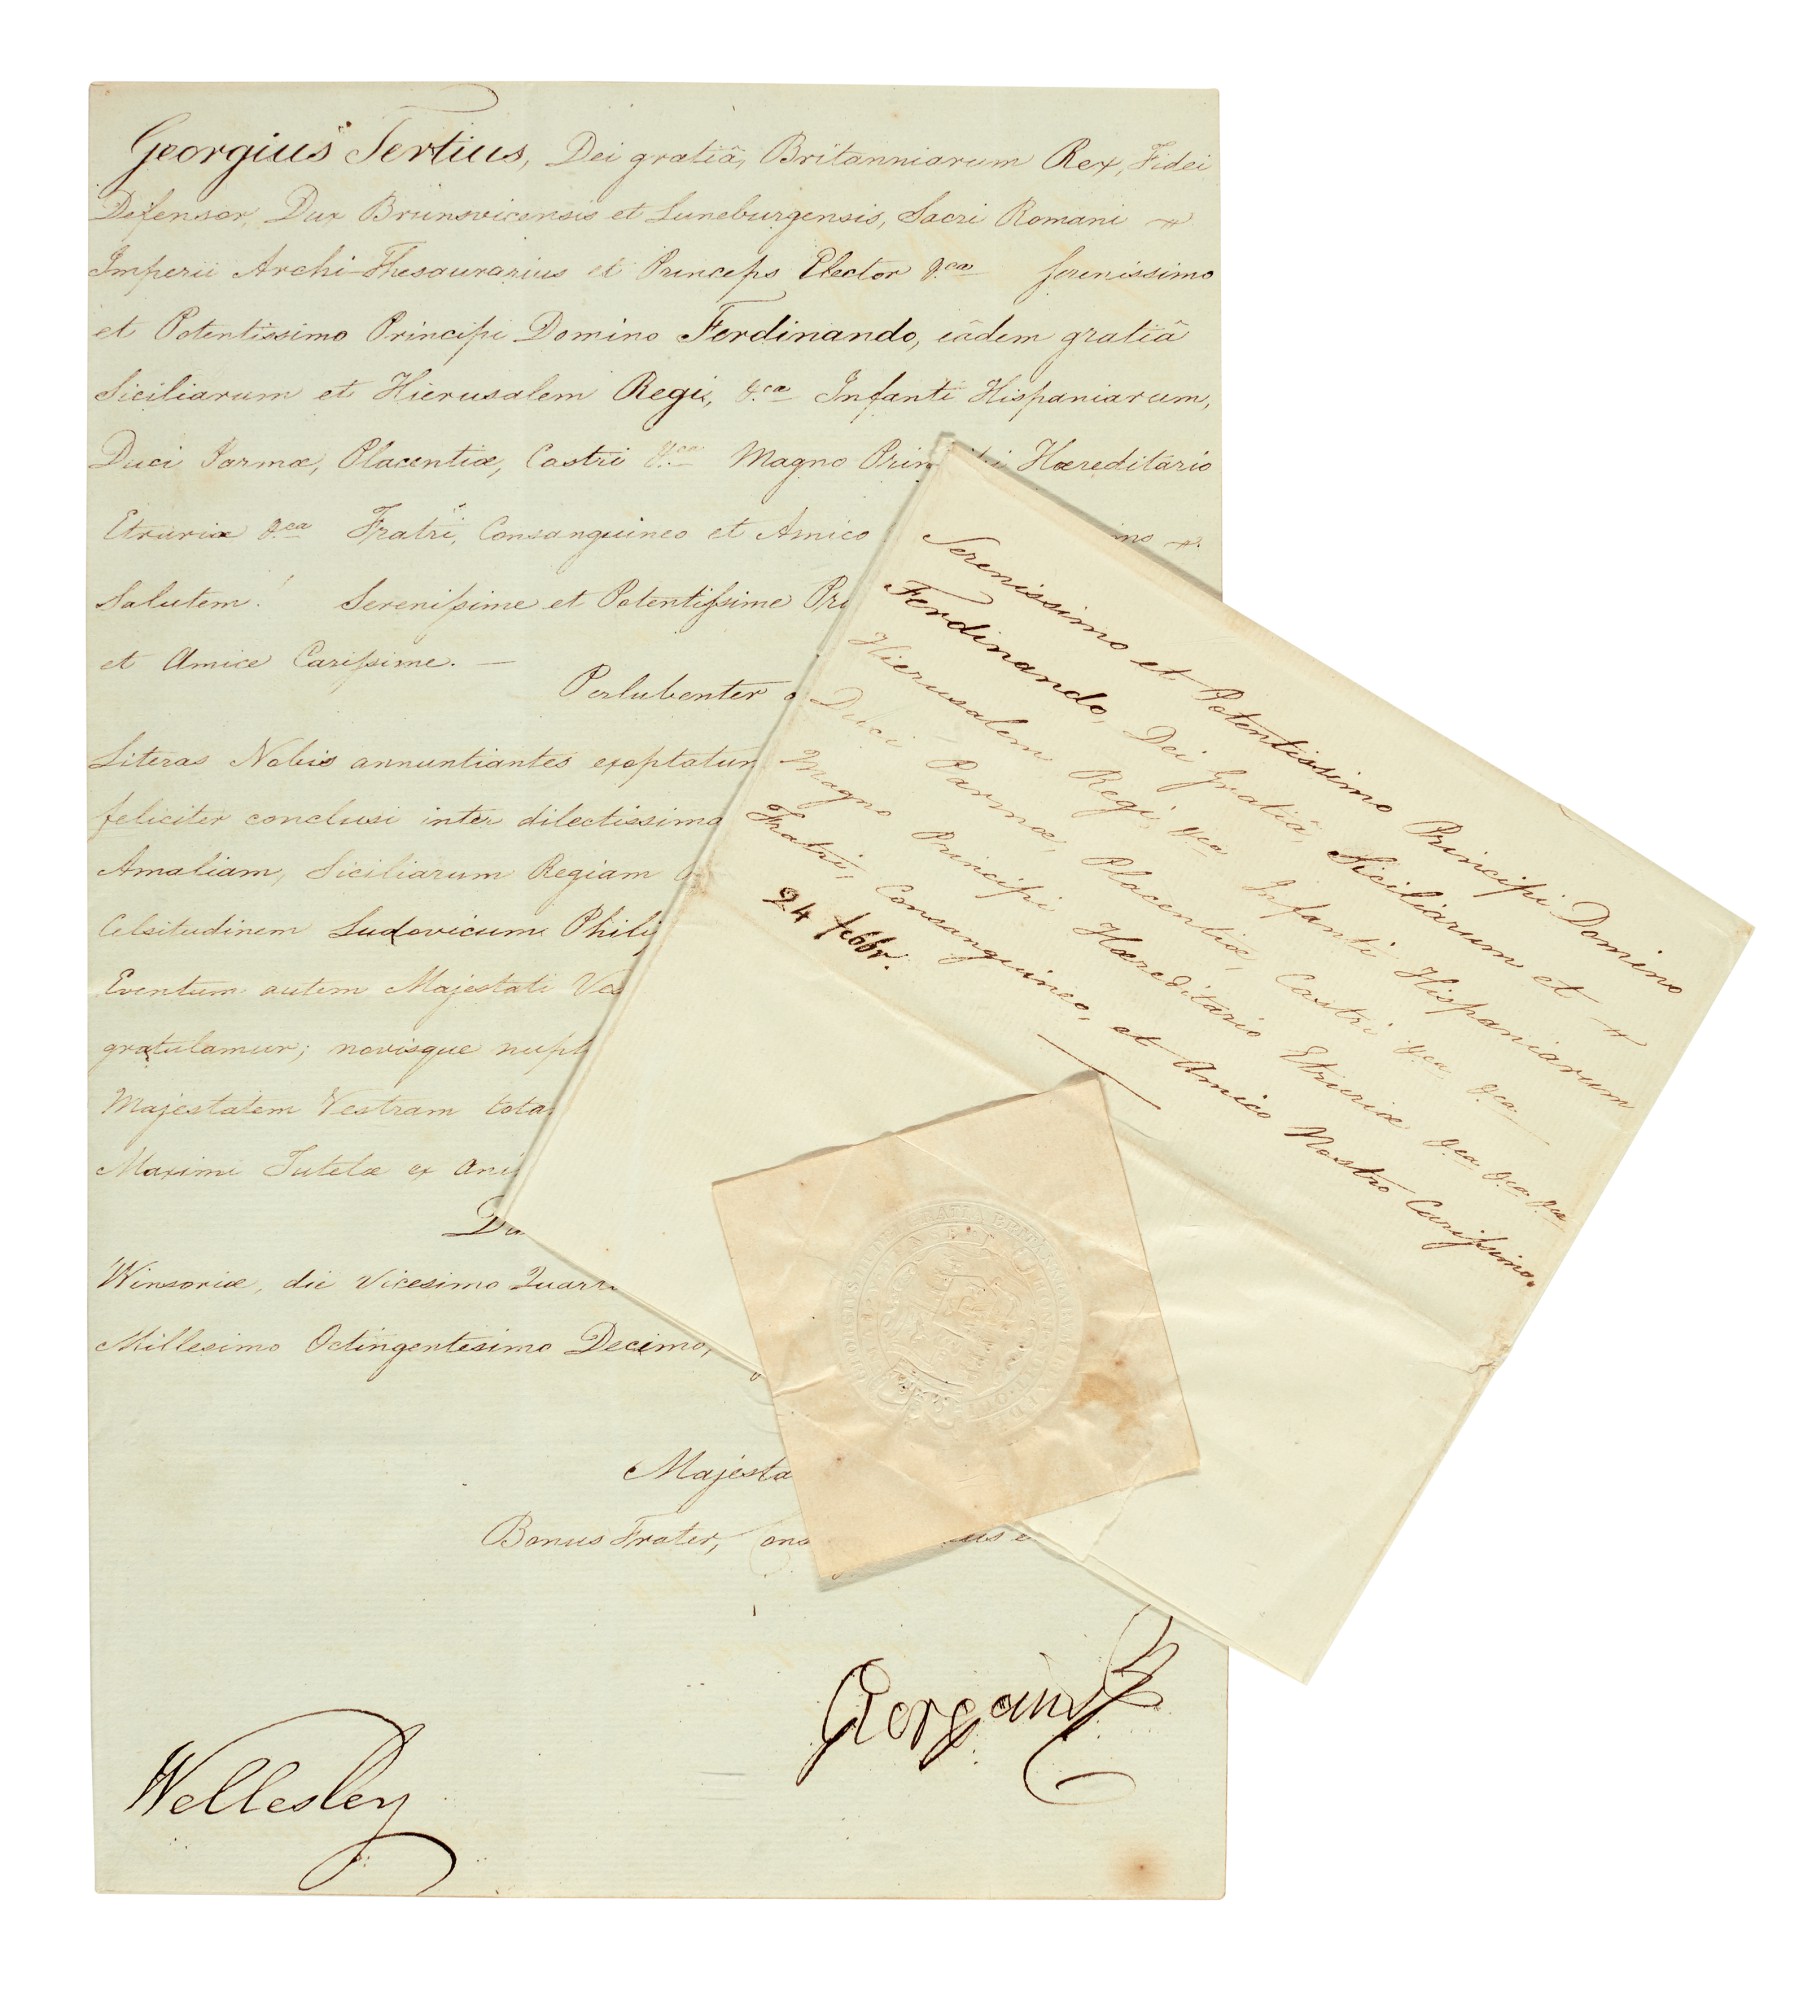 Georgius Tertius, Dei gratiâ, Britanniarum Rex, Fidei
Defensor, Dux Brunsvicensis et Luneburgensis, Sacri Romani
Imperii Archi-Thesaurarius et Princeps Elector &ca Serenissimo
et Potentissimo Principi Domino Ferdinando, eâdem gratiâ
Siciliarum et Hierusalem Regi, &ca Infanti Hispaniarum,
Duci Parmæ, Placentiæ, Castri &ca Magno Prin Hæreditario
Etruriæ &ca Fratri, Consanguineo et Amico
Salutem! Serenissime et Potentissime Pri
et Amice Carissime. —
Perlubenter
Literas Nobis annuntiantes exoptatum
feliciter conclusi inter dilectissima
Amaliam, Siciliarum Regiam
Celsitudinem Ludovicum Phili
Eventum autem Majestati Ves
gratulamur; novisque nupt
Majestatem Vestram tota
Maximi Tutelæ ex ani
Da
Winsoriæ, die Vicesimo Quart
Millesimo Octingentesimo Decimo,
Majesta
Bonus Frater, ons us e
Georgius R
Wellesley
Serenissimo et Potentissimo Principi Domino
Ferdinando, Dei Gratiâ, Siciliarum et
Hierusalem Regi, &ca Infanti Hispaniarum
Duci Parmæ, Placentiæ, Castri &ca &ca
Magno Principi Hæreditario Etruriæ &ca &ca &ca
Fratri, Consanguineo, et Amico Nostro Carissimo.
24 febbr.